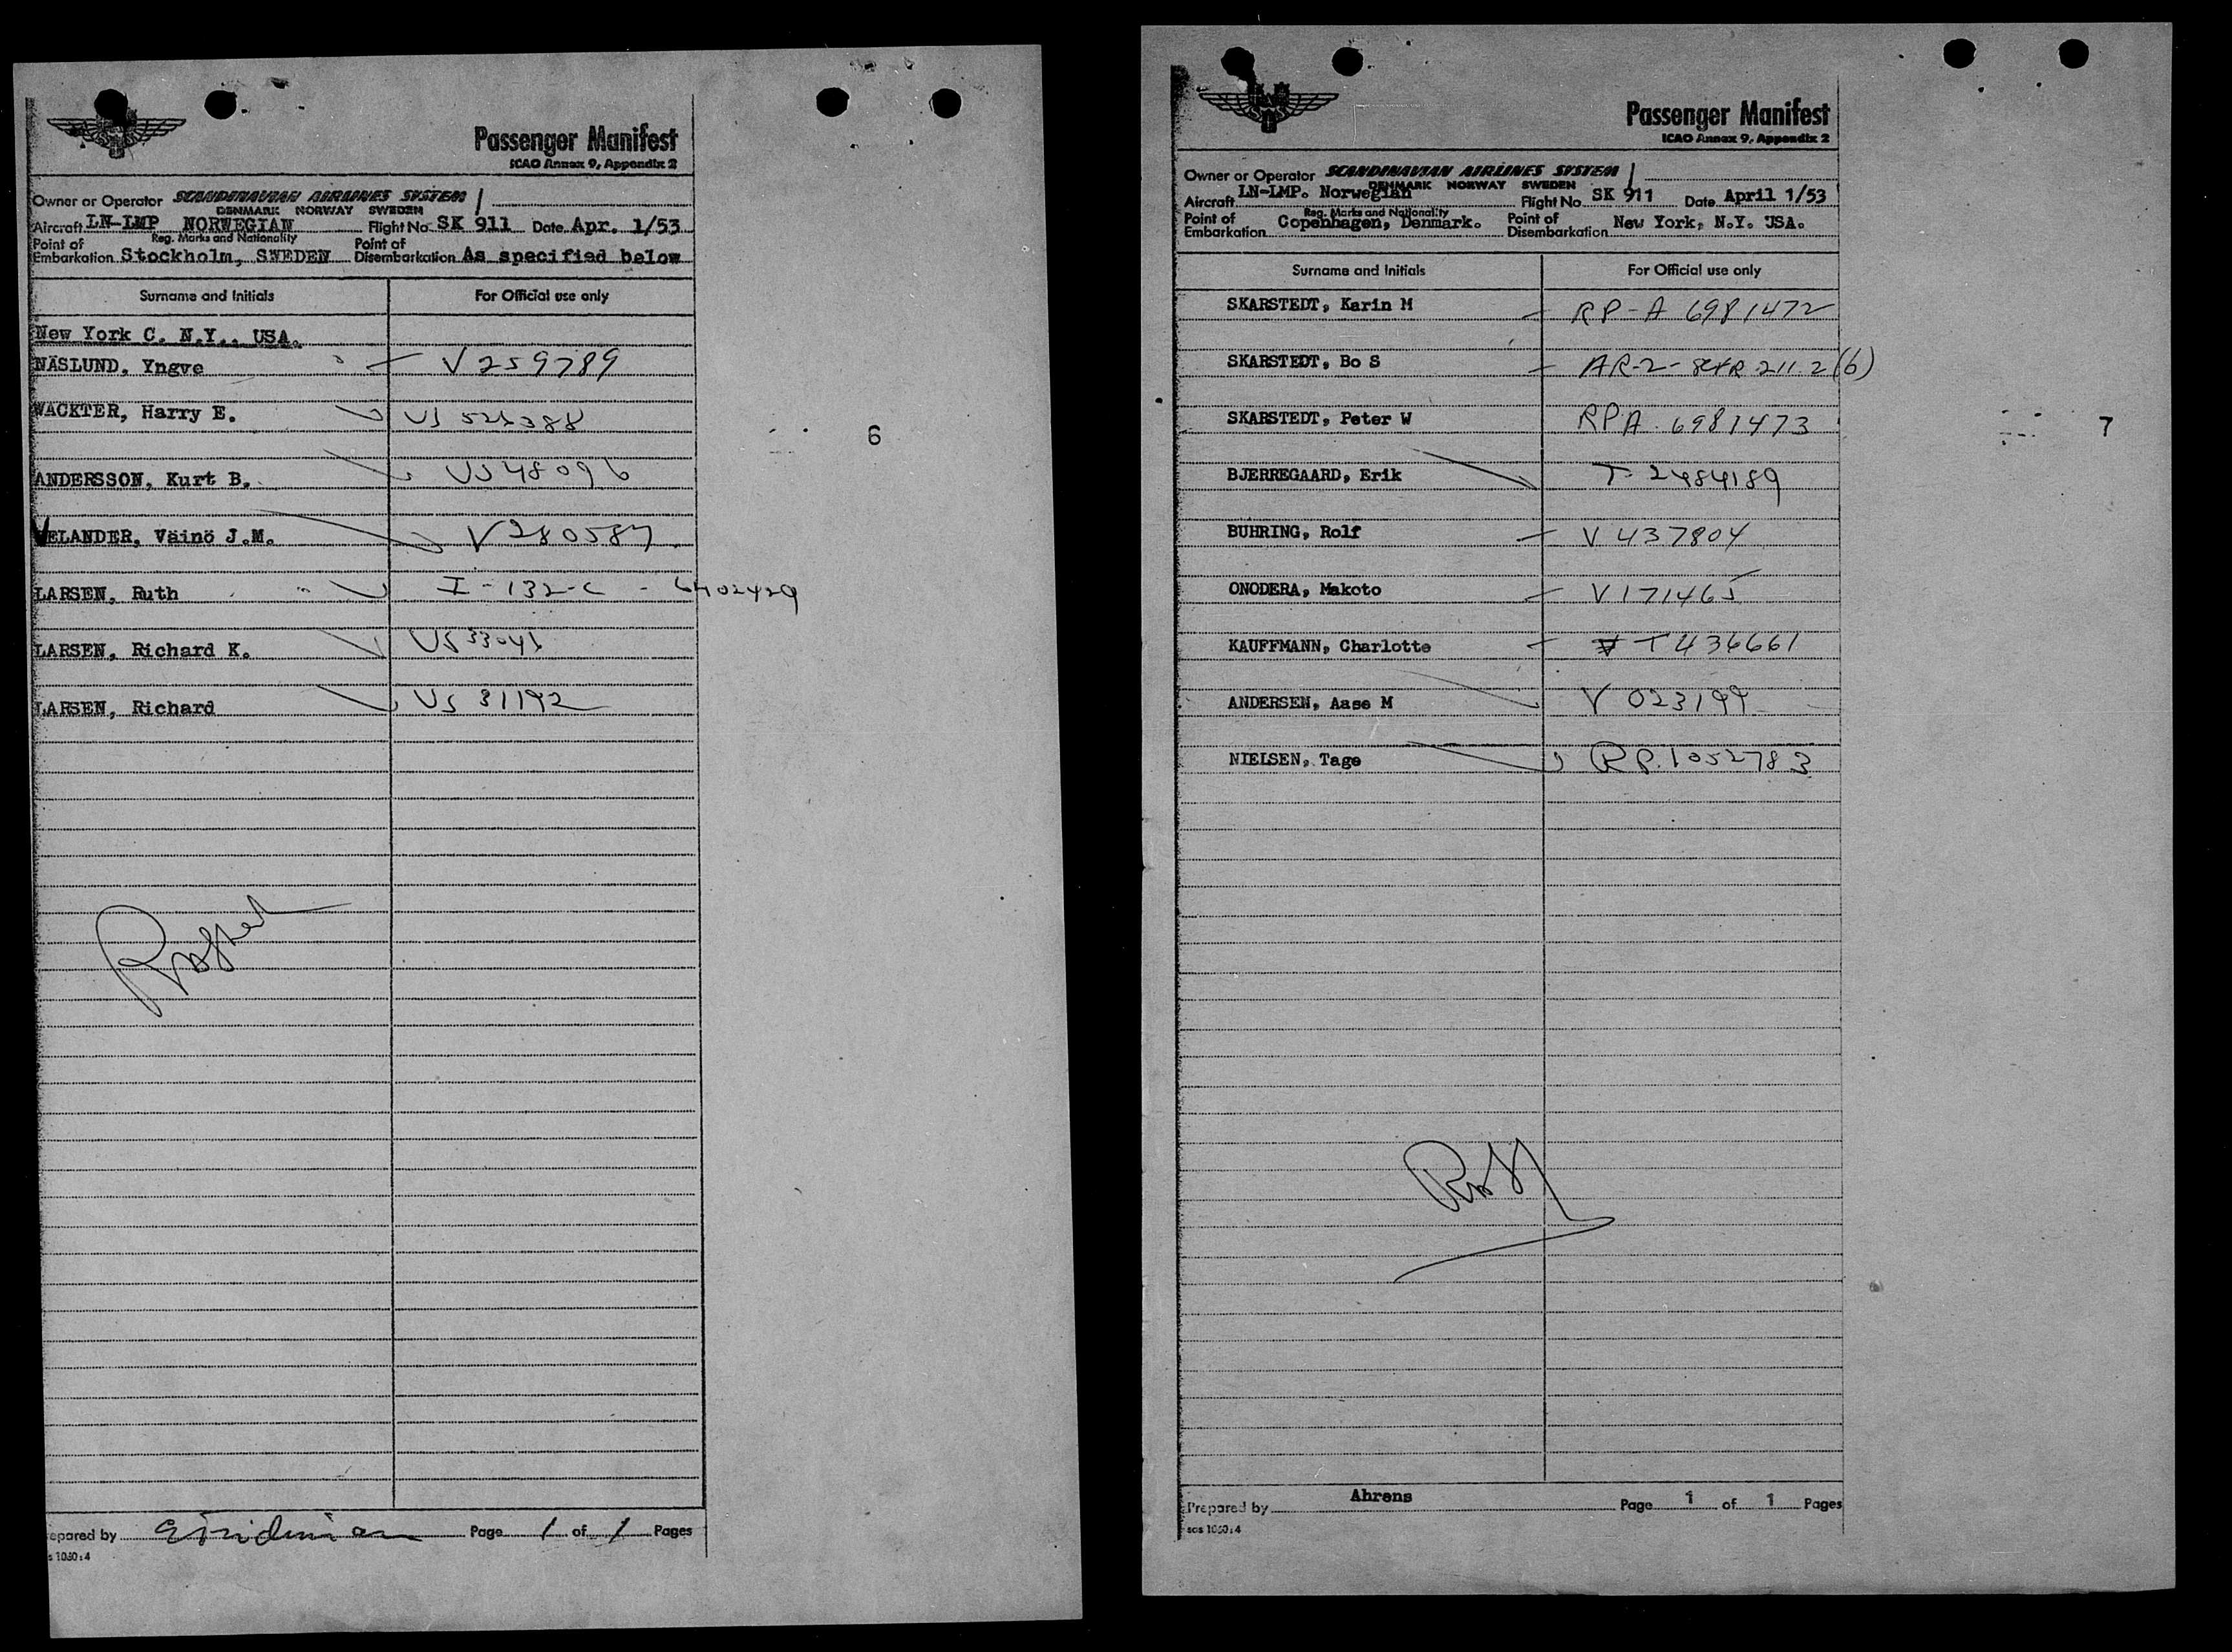 Passenger Manifest
ICAO Annex 9, Appendix 2
Owner or Operator SCANDINAVIAN AIRLINES SYSTEM
DENMARK NORWAY SWEDEN
Aircraft LN-LMP NORWEGIAN Flight No. SK 911 Date Apr. 1/53
Reg. Marks and Nationality
Point of Embarkation Stockholm, SWEDEN Point of Disembarkation As specified below
Surname and Initials For Official use only
New York C. N.Y., USA.
NÄSLUND, Yngve V 259789
WACKTER, Harry E. US
ANDERSSON, Kurt B. US 48096
VELANDER, Väinö J.M. V 280587
LARSEN, Ruth I-132-C - 6402429
LARSEN, Richard K. US 33041
LARSEN, Richard US 31192
6
epared by Page 1 of 1 Pages
s 1050:4
Passenger Manifest
ICAO Annex 9, Appendix 2
Owner or Operator SCANDINAVIAN AIRLINES SYSTEM
DENMARK NORWAY SWEDEN
Aircraft LN-LMP. Norwegian Flight No. SK 911 Date April 1/53
Reg. Marks and Nationality
Point of Embarkation Copenhagen, Denmark. Point of Disembarkation New York, N.Y. USA.
Surname and Initials For Official use only
SKARSTEDT, Karin M RP-A 6981472
SKARSTEDT, Bo S AR-2- 211.2(6)
SKARSTEDT, Peter W RPA 6981473
7
BJERREGAARD, Erik T-2484189
BUHRING, Rolf V 437804
ONODERA, Makoto V 171465
KAUFFMANN, Charlotte T 436661
ANDERSEN, Aase M V 023199
NIELSEN, Tage RP. 1052783
Prepared by Ahrens Page 1 of 1 Pages
sas 1050:4